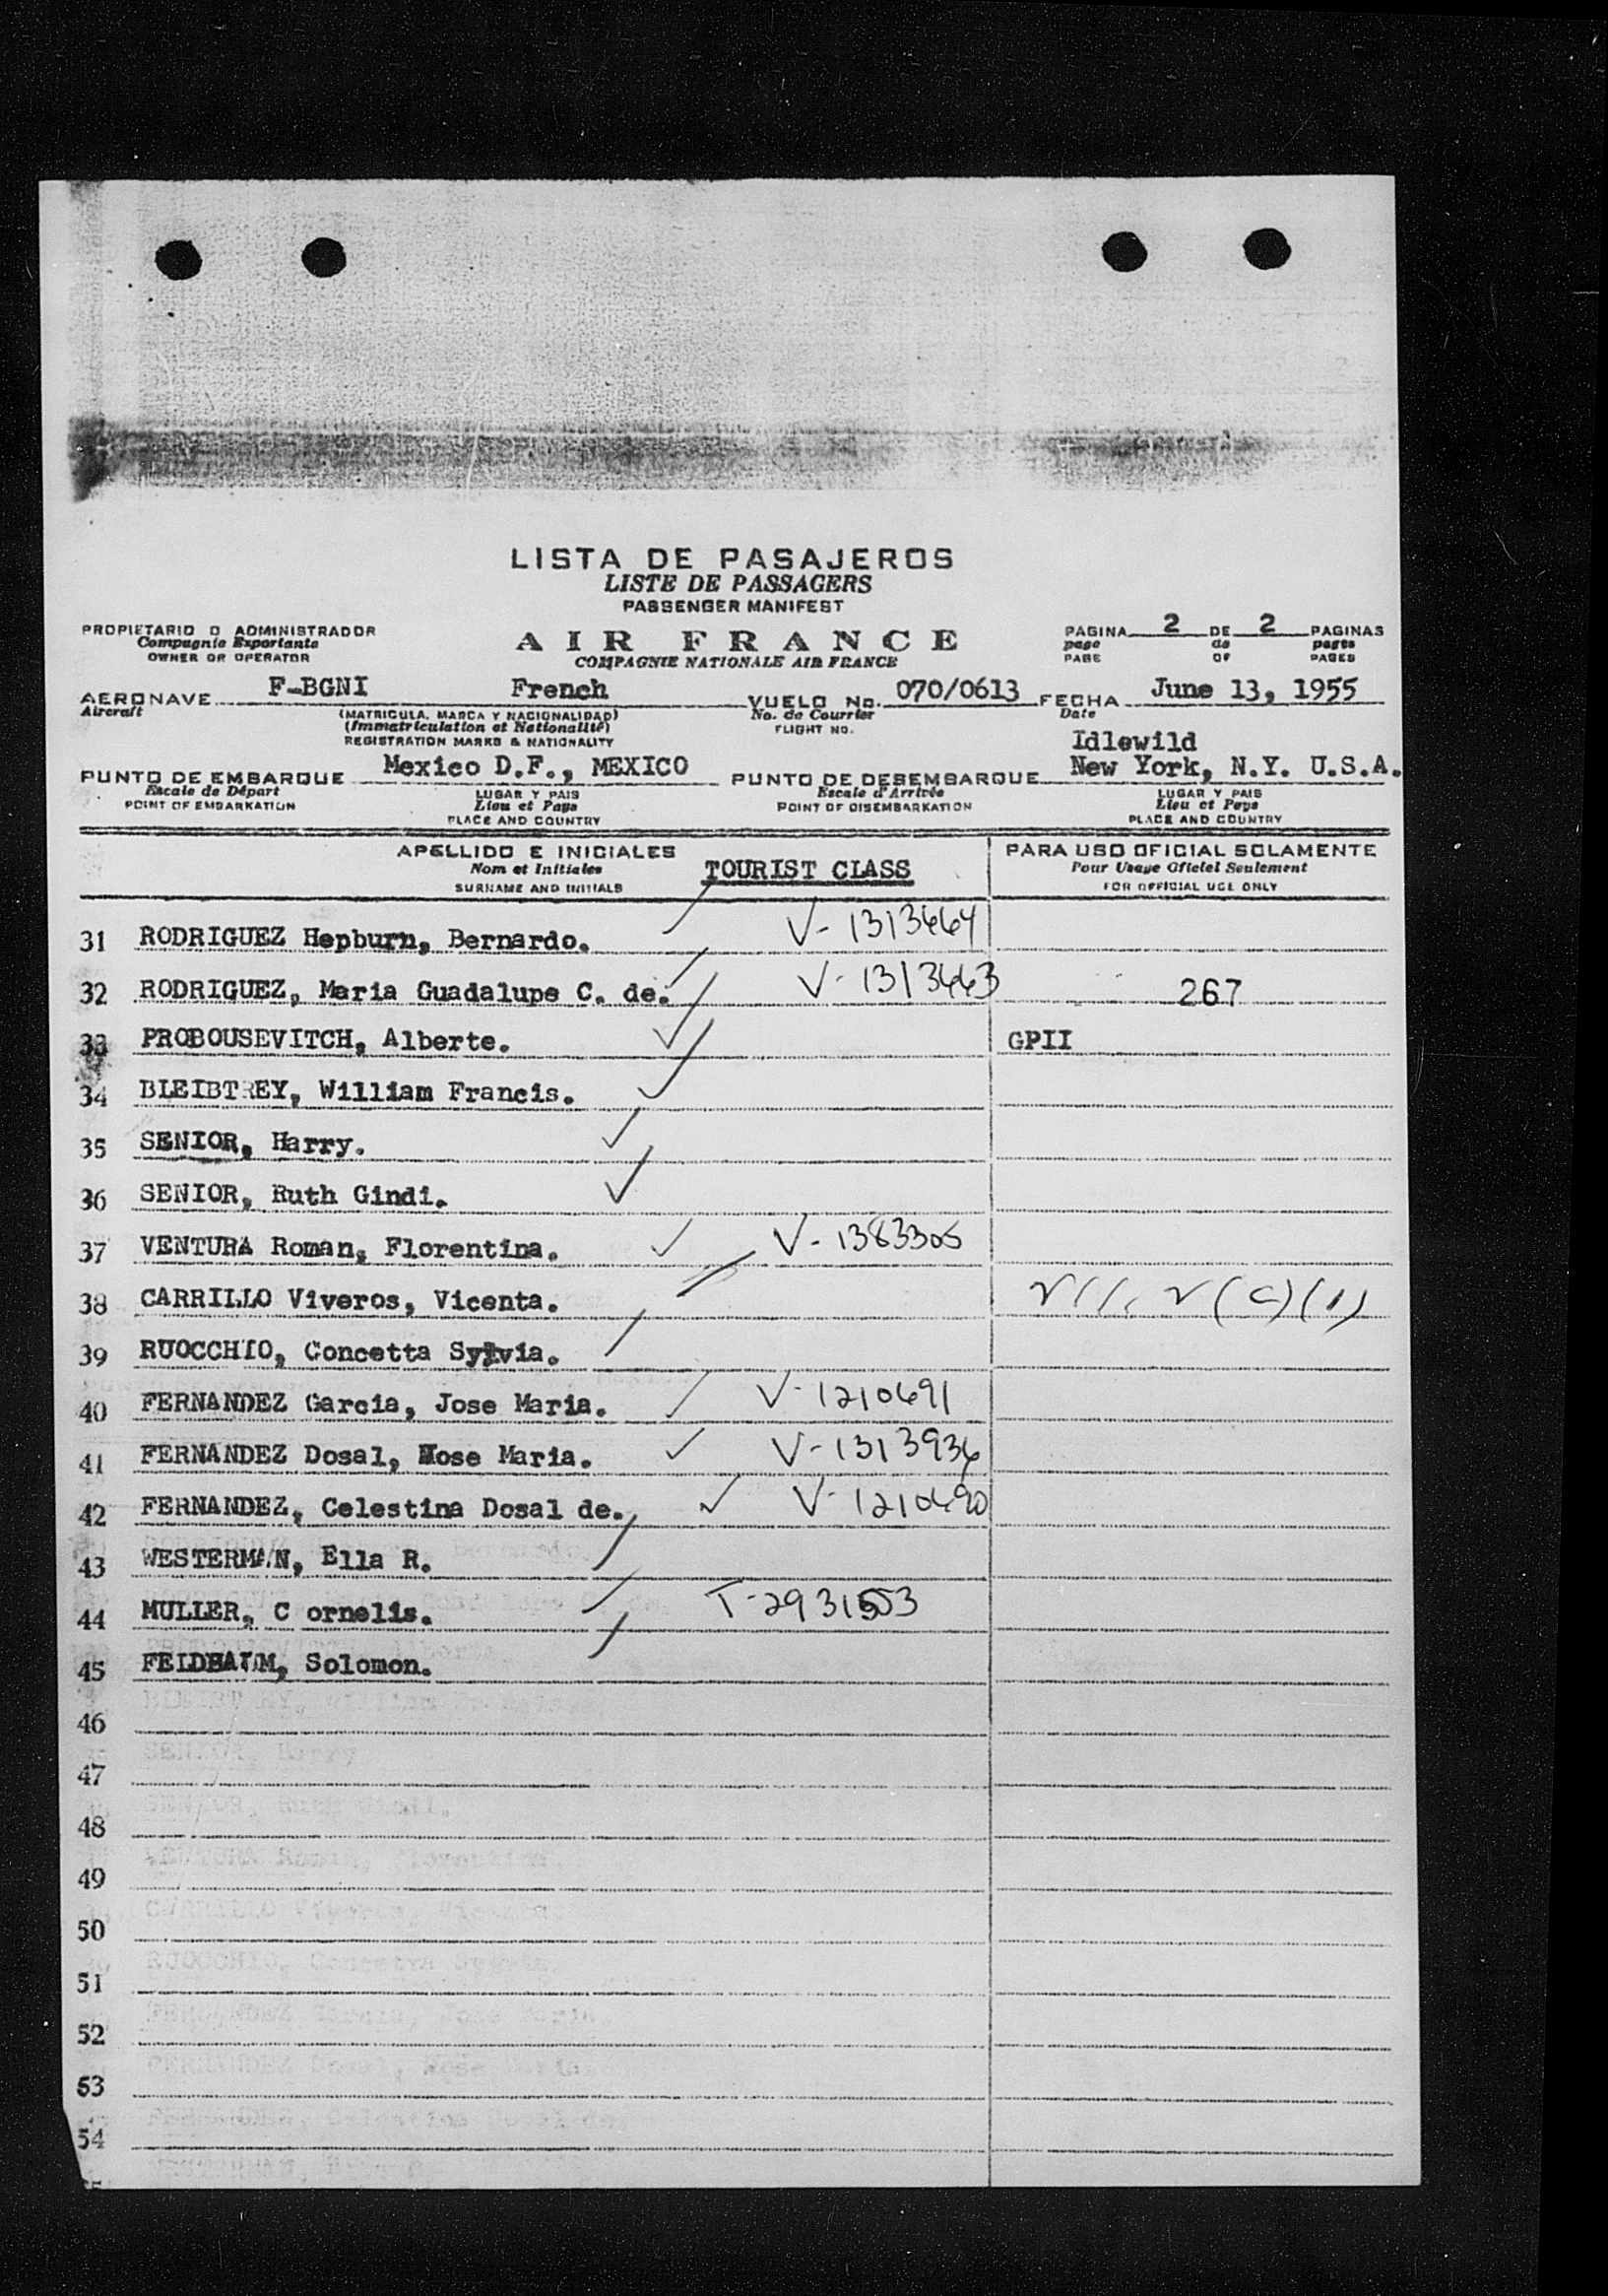 LISTA DE PASAJEROS
LISTE DE PASSAGERS
PASSENGER MANIFEST
PROPIETARIO O ADMINISTRADOR
Compagnie Exportante
OWNER OR OPERATOR
AIR FRANCE
COMPAGNIE NATIONALE AIR FRANCE
PAGINA 2 DE 2 PAGINAS
page de pages
PAGE OF PAGES
AERONAVE F-BGNI French VUELO No. 070/0613 FECHA June 13, 1955
Aircraft (MATRICULA, MARCA Y NACIONALIDAD) No. de Courrier Date
(Immatriculation et Nationalité) FLIGHT NO.
REGISTRATION MARKS & NATIONALITY
Idlewild
PUNTO DE EMBARQUE Mexico D.F., MEXICO PUNTO DE DESEMBARQUE New York, N.Y. U.S.A.
Escale de Départ LUGAR Y PAIS Escale d'Arrivée LUGAR Y PAIS
POINT OF EMBARKATION Lieu et Pays POINT OF DISEMBARKATION Lieu et Pays
PLACE AND COUNTRY PLACE AND COUNTRY
APELLIDO E INICIALES PARA USO OFICIAL SOLAMENTE
Nom et Initiales TOURIST CLASS Pour Usage Officiel Seulement
SURNAME AND INITIALS FOR OFFICIAL USE ONLY
31 RODRIGUEZ Hepburn, Bernardo. V-1313464
32 RODRIGUEZ, Maria Guadalupe C. de. V-1313463 267
33 PROBOUSEVITCH, Alberte. GPII
34 BLEIBTREY, William Francis.
35 SENIOR, Harry.
36 SENIOR, Ruth Gindi.
37 VENTURA Roman, Florentina. V-1383305
38 CARRILLO Viveros, Vicenta.
39 RUOCCHIO, Concetta Sylvia.
40 FERNANDEZ Garcia, Jose Maria. V-1210691
41 FERNANDEZ Dosal, Jose Maria. V-1313936
42 FERNANDEZ, Celestina Dosal de. V-1210690
43 WESTERMAN, Ella R.
44 MULLER, C ornelis. T-2931553
45 FELDBAUM, Solomon.
46
47
48
49
50
51
52
53
54